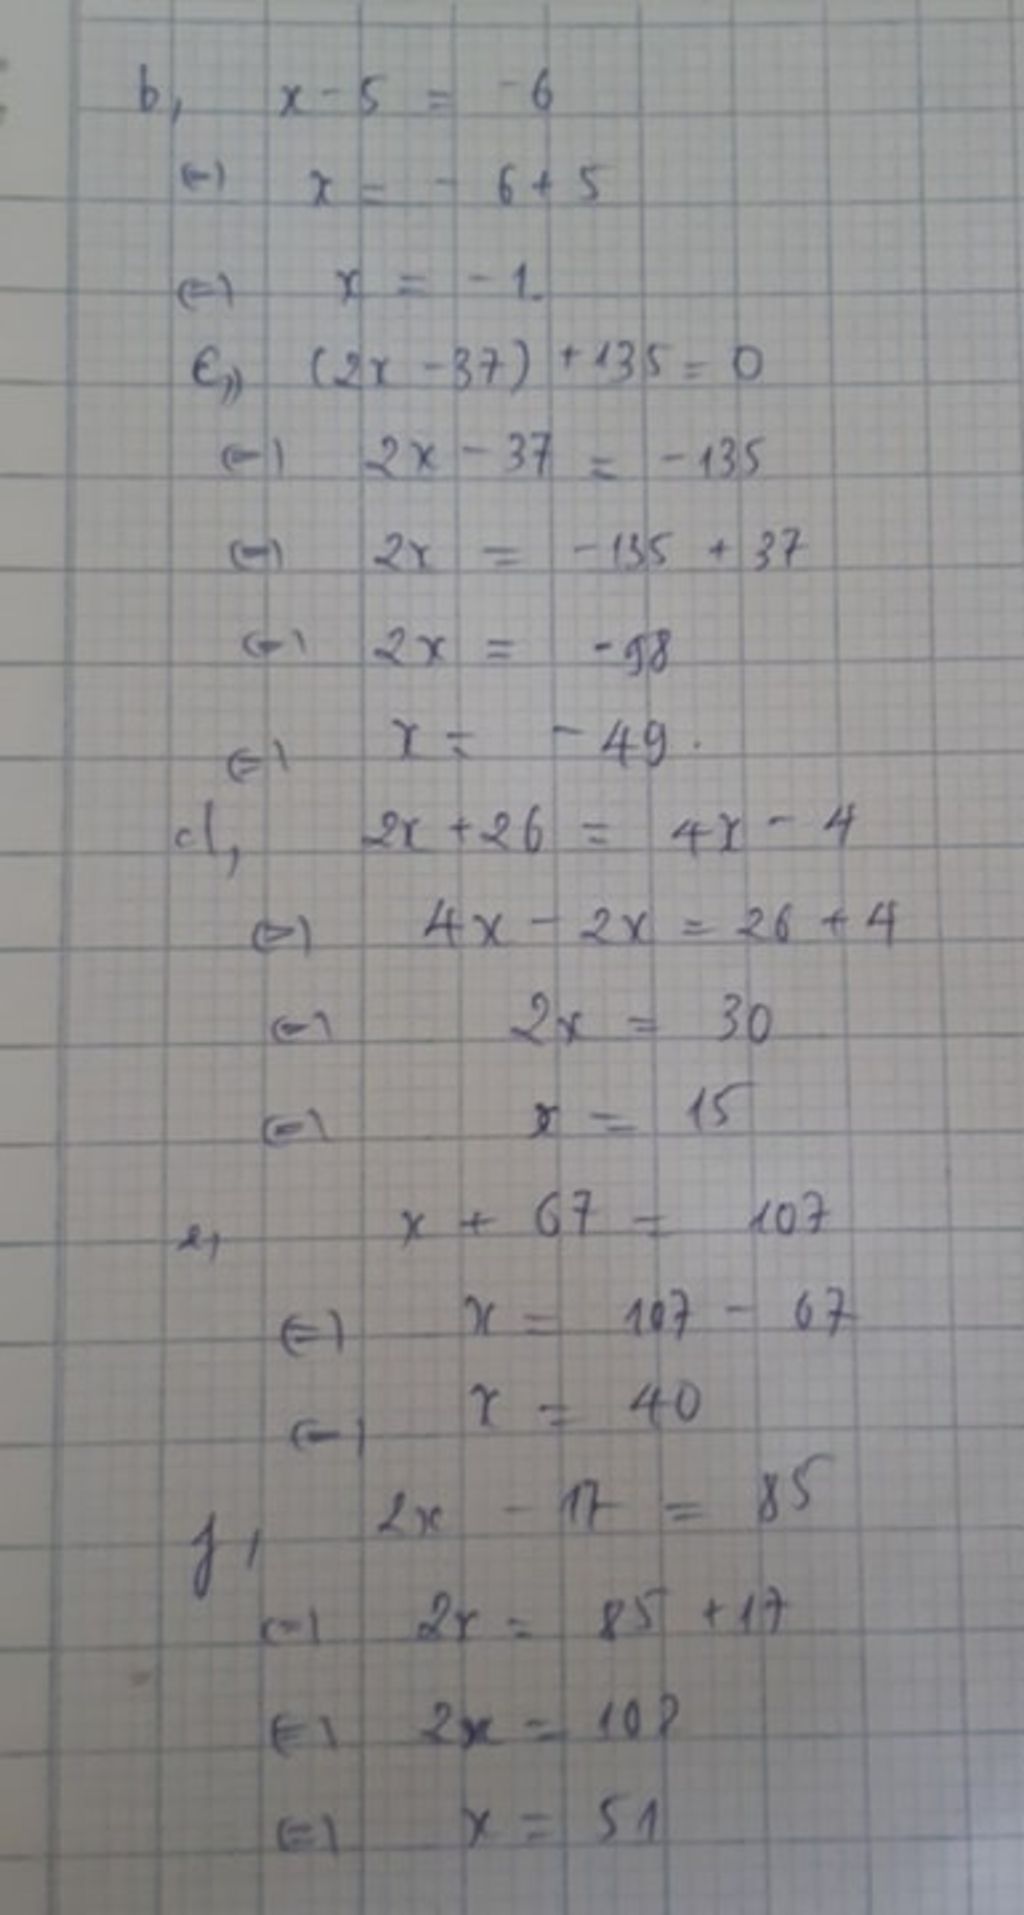 b, x - 5 = -6
(=) x = - 6 + 5
(=) x = - 1
c,, (2x - 37) + 135 = 0
(=) 2x - 37 = -135
(=) 2x = -135 + 37
(=) 2x = -98
(=) x = - 49.
d, 2x + 26 = 4x - 4
(=) 4x - 2x = 26 + 4
(=) 2x = 30
(=) x = 15
e, x + 67 = 107
(=) x = 107 - 67
(=) x = 40
f, 2x - 17 = 85
(=) 2x = 85 + 17
(=) 2x = 102
(=) x = 51